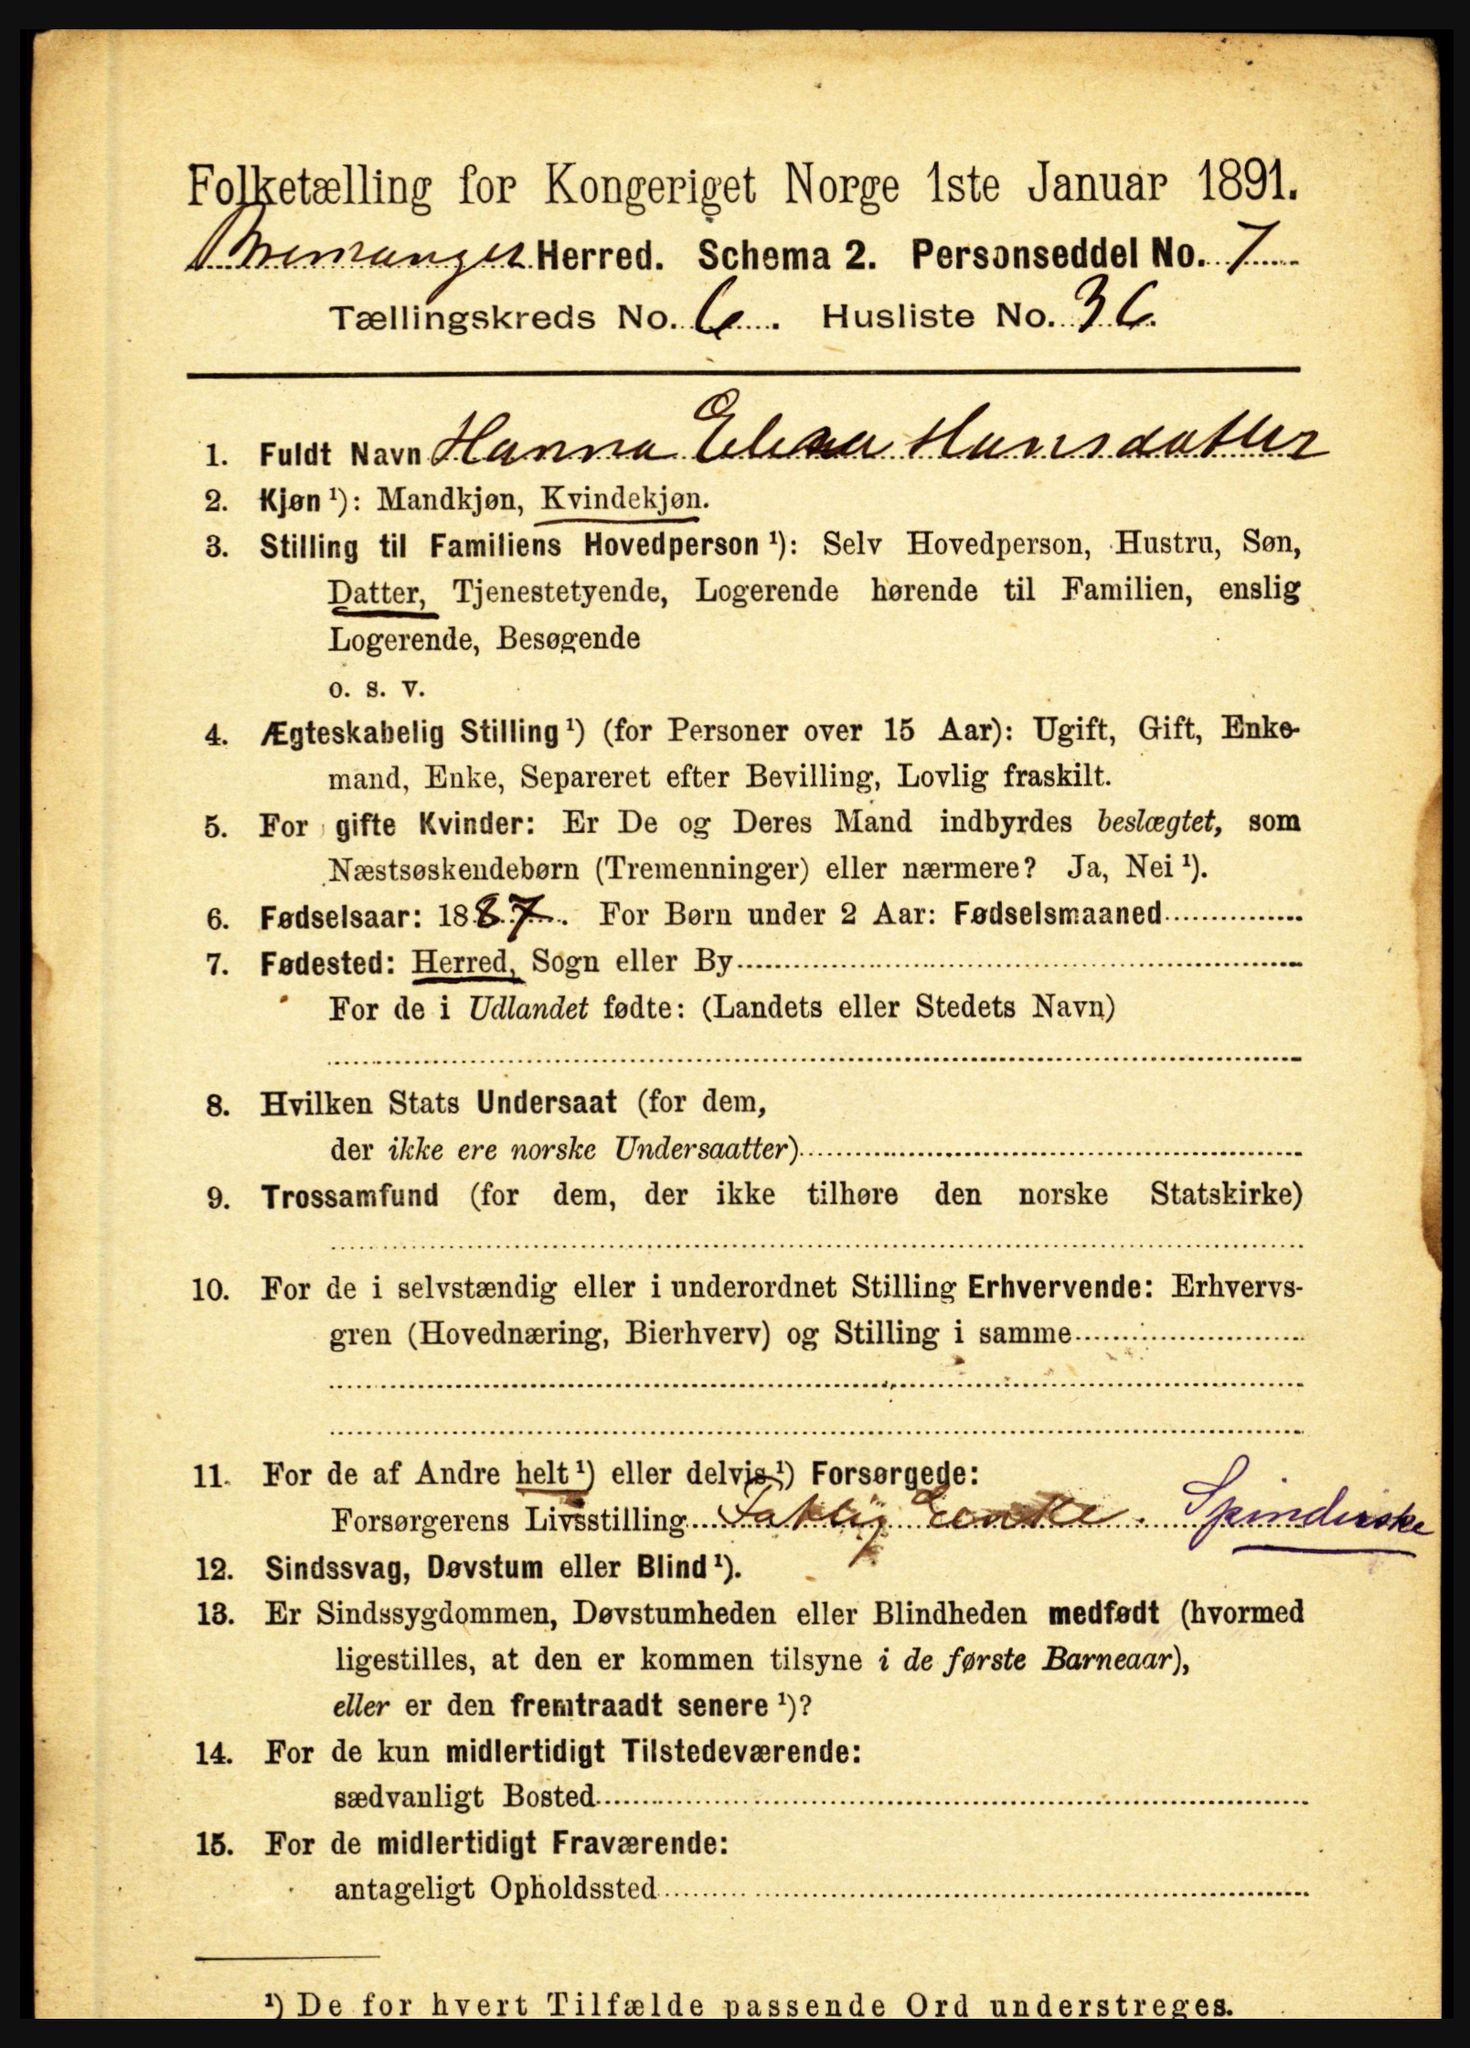 Folketælling for Kongeriget Norge 1ste Januar 1891.
Bremanger Herred. Schema 2. Personseddel No. 7
Tællingskreds No. 6. Husliste No. 36.
1. Fuldt Navn Hanna Elena Hansdatter
2. Kjøn ¹): Mandkjøn, Kvindekjøn.
3. Stilling til Familiens Hovedperson ¹): Selv Hovedperson, Hustru, Søn,
Datter, Tjenestetyende, Logerende hørende til Familien, enslig
Logerende, Besøgende
o. s. v.
4. Ægteskabelig Stilling ¹) (for Personer over 15 Aar): Ugift, Gift, Enke-
mand, Enke, Separeret efter Bevilling, Lovlig fraskilt.
5. For gifte Kvinder: Er De og Deres Mand indbyrdes beslægtet, som
Næstsøskendebørn (Tremenninger) eller nærmere? Ja, Nei ¹).
6. Fødselsaar: 1887. For Børn under 2 Aar: Fødselsmaaned
7. Fødested: Herred, Sogn eller By
For de i Udlandet fødte: (Landets eller Stedets Navn)
8. Hvilken Stats Undersaat (for dem,
der ikke ere norske Undersaatter)
9. Trossamfund (for dem, der ikke tilhøre den norske Statskirke)
10. For de i selvstændig eller i underordnet Stilling Erhvervende: Erhvervs-
gren (Hovednæring, Bierhverv) og Stilling i samme
11. For de af Andre helt ¹) eller delvis ¹) Forsørgede:
Forsørgerens Livsstilling Fattig Enke. Spinderske
12. Sindssvag, Døvstum eller Blind ¹).
13. Er Sindssygdommen, Døvstumheden eller Blindheden medfødt (hvormed
ligestilles, at den er kommen tilsyne i de første Barneaar),
eller er den fremtraadt senere ¹)?
14. For de kun midlertidigt Tilstedeværende:
sædvanligt Bosted
15. For de midlertidigt Fraværende:
antageligt Opholdssted
¹) De for hvert Tilfælde passende Ord understreges.